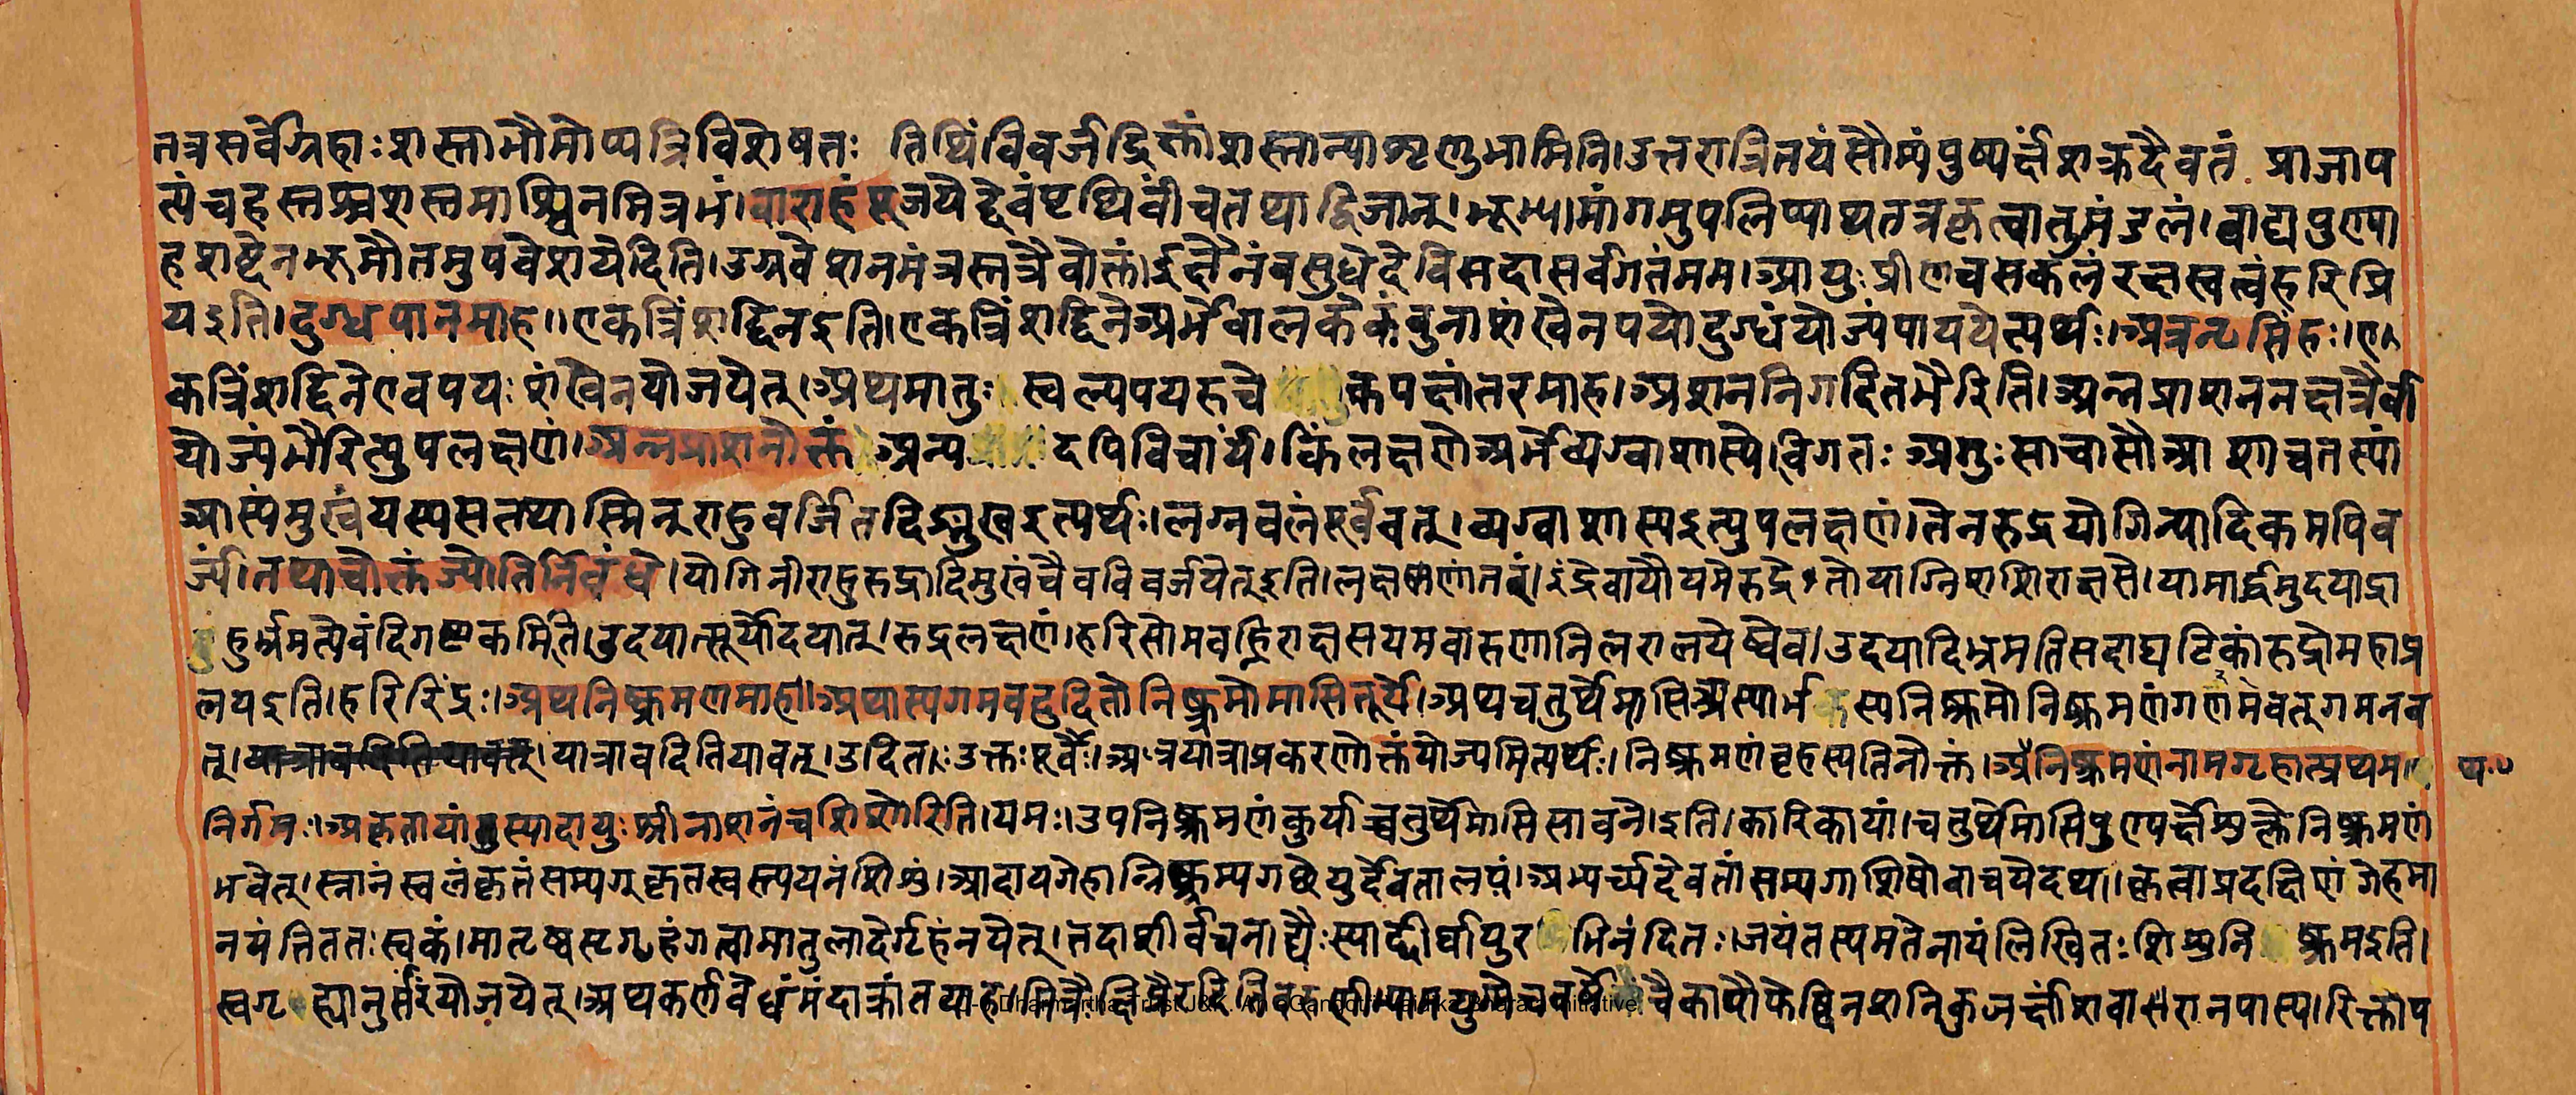 तत्रसर्वेग्रहाःशस्ताभौमोप्यत्रिविशेषतः तिथिंविवर्जद्रिक्तांशस्तान्याशृणुभामिनि।उत्तरात्रितयंसौम्यंपुष्यर्क्षंशक्रदैवतं प्राजाप
त्यंचहस्तश्चशस्तमाश्विनमित्रभं।वाराहंपूजयेद्देवंपृथिवींचतथाद्विजान्।भूम्यामांगमुपलिप्याथतत्रकृत्वातुमंडलं।वाद्यपुण्या
हशब्दैनभूमौतमुपवेशयेदिति।उपवेशनमंत्रस्तत्रैवोक्तः।रक्षैनंवसुधेदेविसदासर्वगतंमम।आयुःप्रीणचसकलंरक्षस्वत्वंहरिप्रि
यइति।दुग्धपानमाह।।एकत्रिंशद्दिनइति।एकत्रिंशद्दिनेअर्भेबालकेकंबुनाशंखेनपयोदुग्धंयोज्यंपाययेत्यर्थः।अत्रनृसिंहः।ए
कत्रिंशद्दिनेएवपयःशंखेनयोजयेत्।अथमातुः स्वल्पपयस्त्वे कपक्षांतरमाह।अशननिगदितभैरिति।अन्नप्राशननक्षत्रैर्वा
योज्यंभैरित्युपलक्षणं।अन्नप्राशनोक्तं अन्य दपिविचार्यं।किंलक्षणेअर्भेव्यग्वाशास्ये।विगतः अगुःसाचासौआशाचतस्यां
आस्यंमुखंयस्यसतथास्मिन्राहुवर्जितदिङ्मुखइत्यर्थः।लग्नबलंपूर्ववत्।व्यग्वाशास्यइत्युपलक्षणं।तेनरुद्रयोगिन्यादिकमपिव
र्ज्यं।तथाचोक्तंज्योतिर्निबंधे।योगिनीराहुरुद्रादिमुखंचैवविवर्जयेत्इति।लक्षणंतु।इंद्रेवायौयमेरुद्रेतोयाग्निशशिराक्षसे।यामार्द्धमुदयाद्रा
हुर्भ्रमत्येवंदिगष्टकमिति।उदयात्सूर्योदयात्।रुद्रलक्षणं।हरिसोमवह्निराक्षसयमवारुणानिलशालयेष्वेव।उदयादिभ्रमतिसदाघटिकांरुद्रोमहाप्र
लयइति।हरिरिंद्रः।अथनिष्क्रमणमाह।।अथास्यगमवदुदितोनिष्क्रमोमासितूर्ये।अथचतुर्थेमासिअस्यार्भकस्यनिष्क्रमोनिष्क्रमणंगमनंभवेत्गमनव
त्।यात्रावदितियावत्।उदितः उक्तःपूर्वैः।अत्रयात्राप्रकरणोक्तंयोज्यमित्यर्थः।निष्क्रमणंबृहस्पतिनोक्तं।अथनिष्क्रमणंनामगृहात्प्रथम
निर्गमः।अकृतायांतुस्यादायुःश्रीनाशनंचशिशोरिति।यमः।उपनिष्क्रमणंकुर्याच्चतुर्थेमासिसावने।इति।कारिकायां।चतुर्थेमासिपुण्यर्क्षेशुक्लेनिष्क्रमणं
भवेत्।स्नानंस्वलंकृतंसम्यग्कृतस्वस्त्ययनंशिशुं।आदायगेहान्निष्क्रम्यगच्छेयुर्देवतालयं।अभ्यर्च्यदेवतांसम्यगाशिषोवाचयेदथ।कृत्वाप्रदक्षिणंगेहमा
नयंतिततःस्वकं।मातृष्वसृगृहंगत्वामातुलादेर्गृहंनयेत्।तदाशीर्वचनाद्यैःस्याद्दीर्घायुरभिनंदितः।जयंतस्यमतेनायंलिखितःशिशुनिष्क्रमइति।
स्वगृह्यानुसारंयोजयेत्।अथकर्णवेधंमंदाक्रांतयाह।